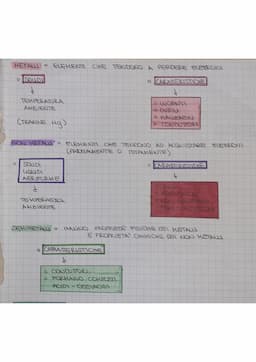 METALLI = ELEMENTI CHE TENDONO A PERDERE ELETTRONI
SOLIDI
CARATTERISTICHE
TEMPERATURA
AMBIENTE
(TRANNE Hg)
LUCENTI
DUTTILI
MALLEABILI
CONDUTTORI
NON METALLI = ELEMENTI CHE TENDONO AD ACQUISTARE ELETTRONI
(PARZIALMENTE O TOTALMENTE)
SOLIDI
LIQUIDI
AERIFORMI
CARATTERISTICHE
TEMPERATURA
AMBIENTE
SEMIMETALLI = HANNO PROPRIETÀ FISICHE DEI METALLI
E PROPRIETÀ CHIMICHE DEI NON METALLI
CARATTERISTICHE
CONDUTTORI
FORMANO COMPOSTI